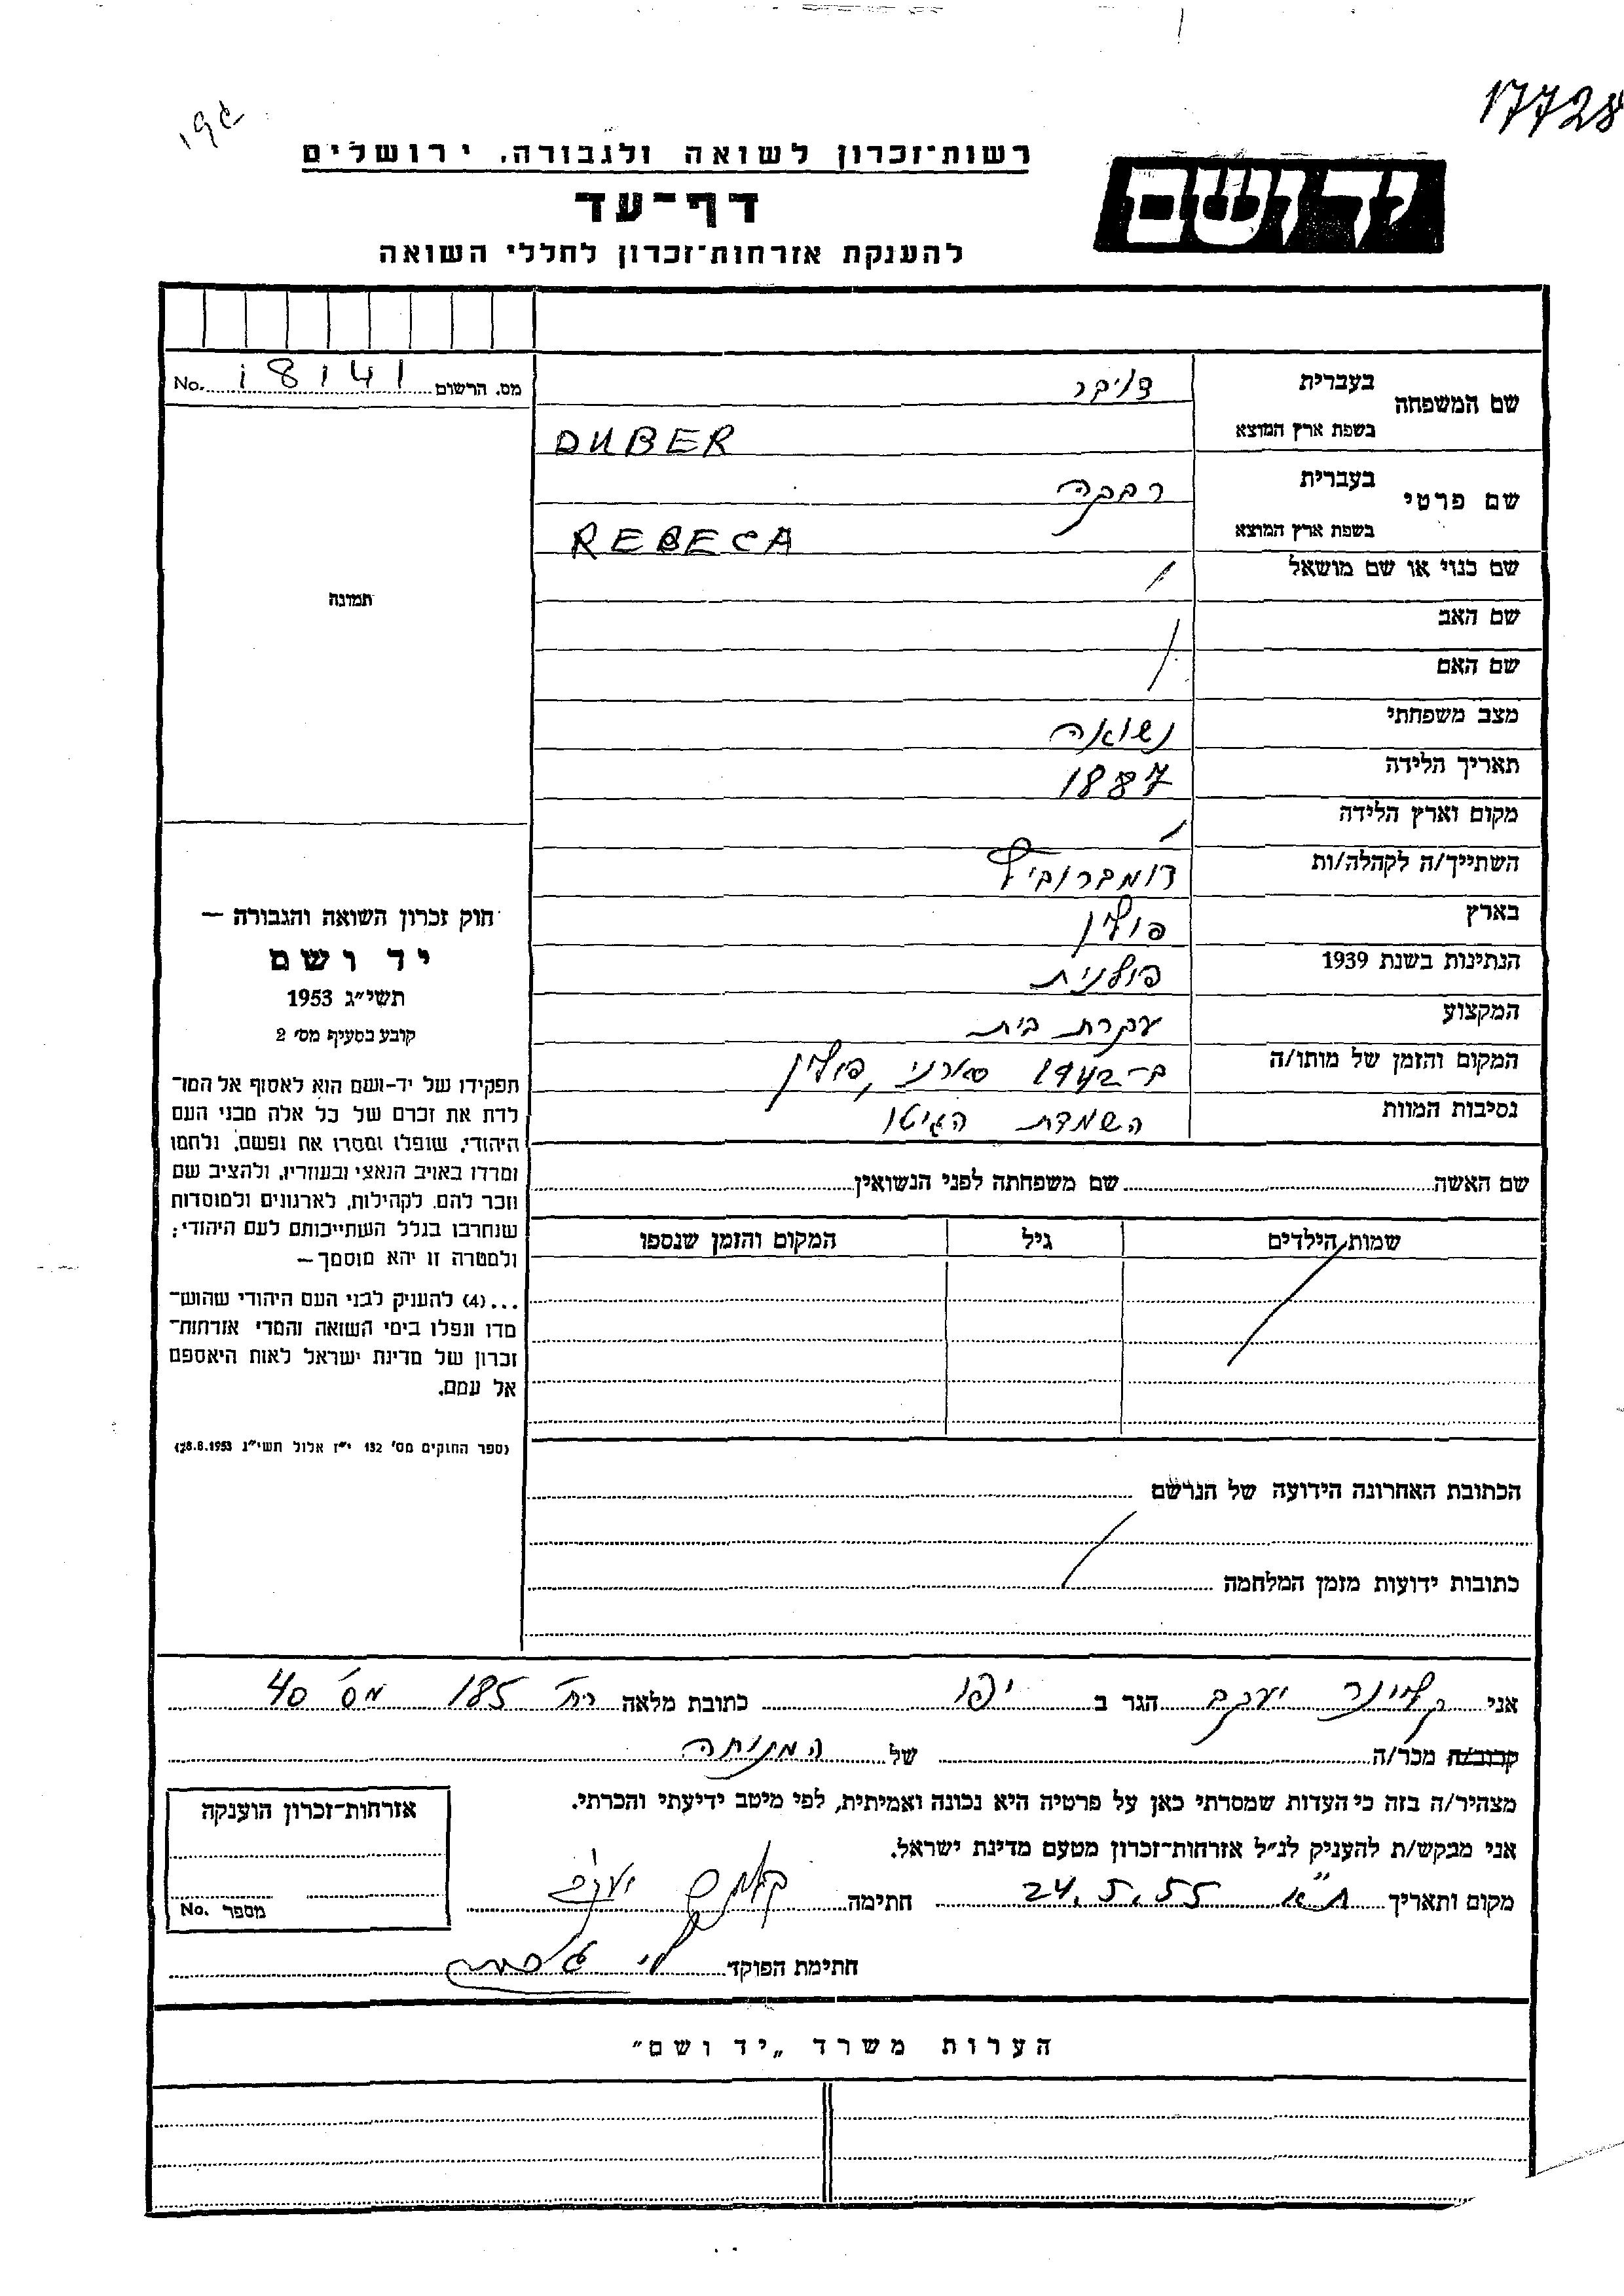 17728
רשות־זכרון לשואה ולגבורה, ירושלים
יד ושם
דף־עד
להענקת אזרחות־זכרון לחללי השואה
מס. הרשום 18141 No.
שם המשפחה בעברית דויבר
בשפת ארץ המוצא DUBER
שם פרטי בעברית רבקה
בשפת ארץ המוצא REBECA
שם כנוי או שם מושאל /
שם האב /
שם האם
מצב משפחתי נשואה
תאריך הלידה 1887
מקום וארץ הלידה
השתייך/ה לקהלה/ות דומברוביץ
בארץ פולין
הנתינות בשנת 1939 פולנית
המקצוע עקרת בית
המקום והזמן של מותו/ה ב-1942 סארני, פולין
נסיבות המוות השמדת הגיטו
שם האשה שם משפחתה לפני הנשואין
שמות הילדים גיל המקום והזמן שנספו
הכתובת האחרונה הידועה של הנרשם
כתובות ידועות מזמן המלחמה
תמונה
חוק זכרון השואה והגבורה —
יד ושם
תשי״ג 1953
קובע בסעיף מס׳ 2
תפקידו של יד-ושם הוא לאסוף אל המו־
לדת את זכרם של כל אלה מבני העם
היהודי, שנפלו ומסרו את נפשם, נלחמו
ומרדו באויב הנאצי ובעוזריו, ולהציב שם
וזכר להם, לקהילות, לארגונים ולמוסדות
שנחרבו בגלל השתייכותם לעם היהודי;
ולמטרה זו יהא מוסמך —
...(4) להעניק לבני העם היהודי שהוש־
מדו ונפלו בימי השואה והמרי אזרחות־
זכרון של מדינת ישראל לאות היאספם
אל עמם.
(ספר החוקים מס׳ 132 י״ז אלול תשי״ג 28.8.1953)
אני קלינר יעקב הגר ב יפו כתובת מלאה רח׳ 185 מס׳ 40
קרוב/ה מכר/ה של המנוחה
מצהיר/ה בזה כי העדות שמסרתי כאן על פרטיה היא נכונה ואמיתית, לפי מיטב ידיעתי והכרתי.
אני מבקש/ת להעניק לנ״ל אזרחות־זכרון מטעם מדינת ישראל.
מקום ותאריך ת״א 24.5.55 חתימה יעקב
חתימת הפוקד
אזרחות־זכרון הוענקה
מספר No.
הערות משרד „יד ושם״